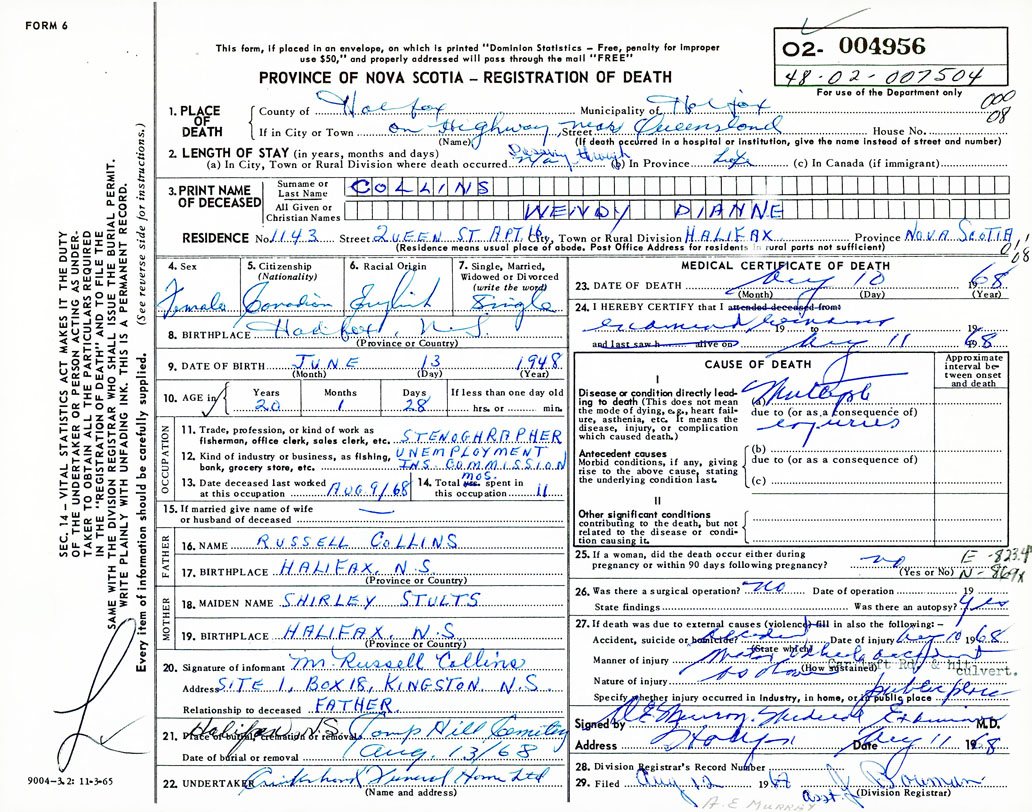 FORM 6
02- 004956
48-02-007504
For use of the Department only
000
08
This form, if placed in an envelope, on which is printed "Dominion Statistics – Free, penalty for improper
use $50," and properly addressed will pass through the mail "FREE"
PROVINCE OF NOVA SCOTIA – REGISTRATION OF DEATH
1. PLACE OF DEATH County of Halifax Municipality of Halifax
If in City or Town on Highway near Queensland Street House No.
(Name) (If death occurred in a hospital or institution, give the name instead of street and number)
2. LENGTH OF STAY (in years, months and days)
(a) In City, Town or Rural Division where death occurred Passing through (b) In Province Life (c) In Canada (if immigrant)
3. PRINT NAME OF DECEASED
Surname or Last Name COLLINS
All Given or Christian Names WENDY DIANNE
RESIDENCE No. 1143 Street QUEEN ST APT 16 City, Town or Rural Division HALIFAX Province NOVA SCOTIA
(Residence means usual place of abode. Post Office Address for residents in rural parts not sufficient)
4. Sex
Female
5. Citizenship (Nationality)
Canadian
6. Racial Origin
English
7. Single, Married, Widowed or Divorced (write the word)
Single
8. BIRTHPLACE Halifax, N.S.
(Province or Country)
9. DATE OF BIRTH JUNE 13 1948
(Month) (Day) (Year)
10. AGE in Years Months Days If less than one day old
20 1 28 hrs. or min.
OCCUPATION
11. Trade, profession, or kind of work as fisherman, office clerk, sales clerk, etc. STENOGHRAPHER
12. Kind of industry or business, as fishing, bank, grocery store, etc. UNEMPLOYMENT INS. COMMISSION
13. Date deceased last worked at this occupation AUG 9/68
14. Total yrs. mos. spent in this occupation 11
15. If married give name of wife or husband of deceased —
FATHER
16. NAME RUSSELL COLLINS
17. BIRTHPLACE HALIFAX, N.S.
(Province or Country)
MOTHER
18. MAIDEN NAME SHIRLEY STULTS
19. BIRTHPLACE HALIFAX, N.S
(Province or Country)
20. Signature of informant Mr. Russell Collins
Address SITE 1, BOX 18, KINGSTON N.S.
Relationship to deceased FATHER
21. Place of burial, cremation or removal Halifax, N.S. Camp Hill Cemetery
Date of burial or removal Aug. 13/68
22. UNDERTAKER Cruikshank Funeral Home Ltd
(Name and address)
MEDICAL CERTIFICATE OF DEATH
23. DATE OF DEATH Aug 10 1968
(Month) (Day) (Year)
24. I HEREBY CERTIFY that I attended deceased from
examined 19 to 19
and last saw h alive on Aug 11 1968
CAUSE OF DEATH
Approximate interval between onset and death
I
Disease or condition directly leading to death (This does not mean the mode of dying, e.g., heart failure, asthenia, etc. It means the disease, injury, or complication which caused death.)
(a) Multiple
due to (or as a consequence of)
injuries
Antecedent causes
Morbid conditions, if any, giving rise to the above cause, stating the underlying condition last.
(b)
due to (or as a consequence of)
(c)
II
Other significant conditions contributing to the death, but not related to the disease or condition causing it.
25. If a woman, did the death occur either during pregnancy or within 90 days following pregnancy? no
(Yes or No)
E - 823.4
N - 869x
26. Was there a surgical operation? no Date of operation 19
State findings Was there an autopsy? Yes
27. If death was due to external causes (violence) fill in also the following: –
Accident, suicide or homicide? Accident Date of injury Aug 10 1968
(State which)
Manner of injury Motor Vehicle accident
(How sustained) Car left Rd. & hit culvert.
Nature of injury as above
Specify whether injury occurred in Industry, in home, or in public place public place
Signed by Medical Examiner M.D.
Address Date Aug 11 1968
28. Division Registrar's Record Number
29. Filed Aug 12 1968
Asst.
(Division Registrar)
A. E. MURRAY
SEC. 14 – VITAL STATISTICS ACT MAKES IT THE DUTY
OF THE UNDERTAKER OR PERSON ACTING AS UNDER-
TAKER TO OBTAIN ALL THE PARTICULARS REQUIRED
IN THE "REGISTRATION OF DEATH" AND TO FILE THE
SAME WITH THE DIVISION REGISTRAR WHO SHALL ISSUE THE BURIAL PERMIT.
WRITE PLAINLY WITH UNFADING INK. THIS IS A PERMANENT RECORD.
Every item of information should be carefully supplied. (See reverse side for instructions.)
9004-3.2: 11-3-65